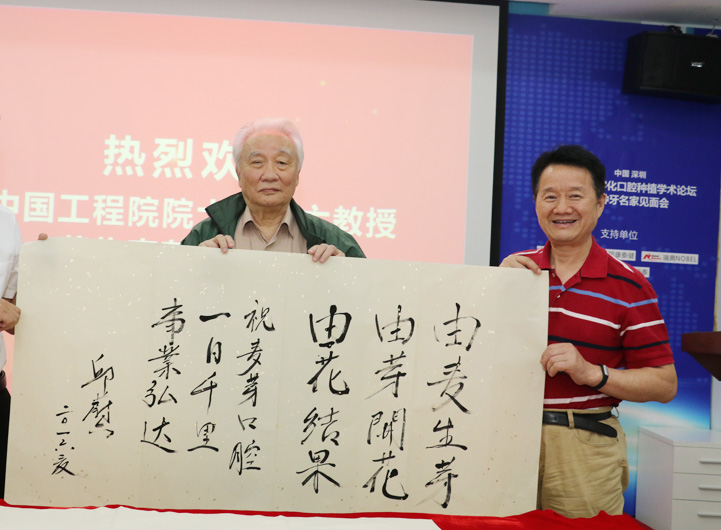 热烈欢
中国工程院院
教授
中国 深圳
字化口腔种植学术论坛
牙名家见面会
支持单位
瑞典NOBEL
由麦生芽
由芽開花
由花结果
祝麦芽口腔
一日千里
事業弘达
邱蔚六
二〇一六夏